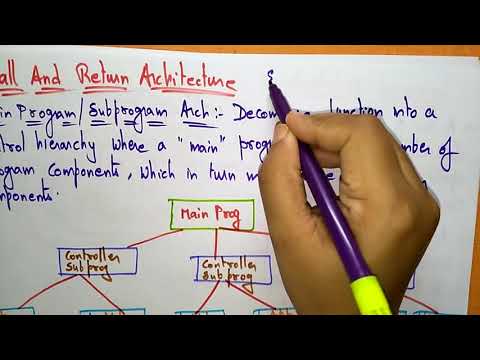 all And Return Architecture s
in Program / Subprogram Arch:- Decom function into a
trol hierarchy where a "main" prog mber of
ogram Components, which in turn m
mponents.
Main Prog
Controller Controller
Subprog Subprog